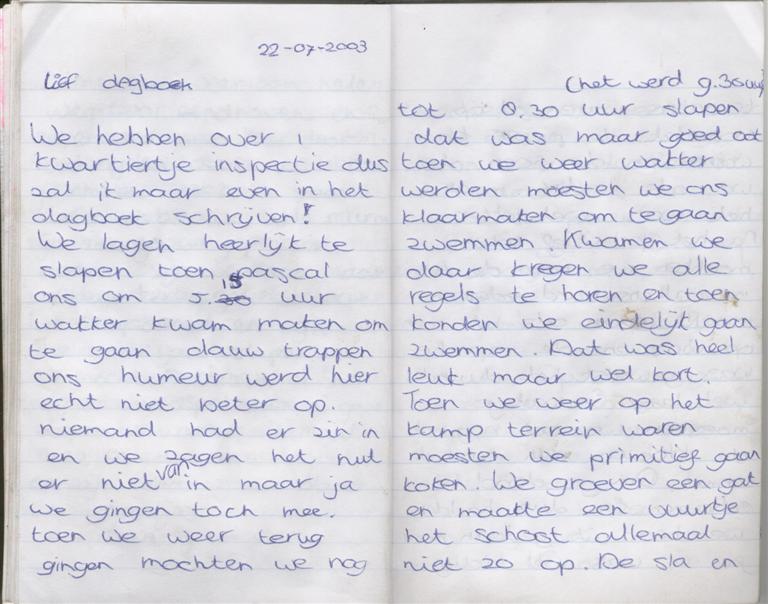 22-07-2003
Lief dagboek
We hebben over 1
kwartiertje inspectie dus
zal ik maar even in het
dagboek schrijven!
We lagen heerlijk te
slapen toen pascal
ons om 5.15 uur
wakker kwam maken om
te gaan dauw trappen
ons humeur werd hier
echt niet beter op.
niemand had er zin in
en we zagen het nut
er niet van in maar ja
we gingen toch mee.
toen we weer terug
gingen mochten we nog
(het werd 9.30 uur)
tot 8.30 uur slapen
dat was maar goed ook
toen we weer wakker
werden moesten we ons
klaarmaken om te gaan
zwemmen. Kwamen we
daar kregen we alle
regels te horen en toen
konden we eindelijk gaan
zwemmen. Dat was heel
leuk maar wel kort.
Toen we weer op het
kamp terrein waren
moesten we primitief gaan
koken. We groeven een gat
en maakte een vuurtje
het schoot allemaal
niet zo op. De sla en